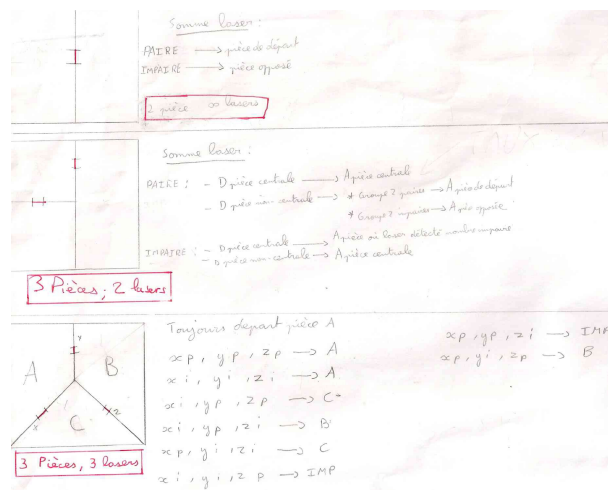 Somme laser :
PAIRE → pièce de départ
IMPAIRE → pièce opposé
2 pièce ∞ lasers
Somme laser :
PAIRE : - D pièce centrale → A pièce central
- D pièce non-centrale → * Groupe ? paires → A pièce de départ
* Groupe ? impaires → A pièce opposée
IMPAIRE : - D pièce centrale → A pièce où laser détecté nombre impaire
- D pièce non-centrale → A pièce centrale
3 Pièces, 2 lasers
Toujours départ pièce A
A
B
C
y
x
z
xp, yp, zp → A
xi, yi, zi → A
xi, yp, zp → C
xi, yp, zi → B
xp, yi, zi → C
xi, yi, zp → IMP
xp, yp, zi → IMP
xp, yi, zp → B
3 Pièces, 3 lasers